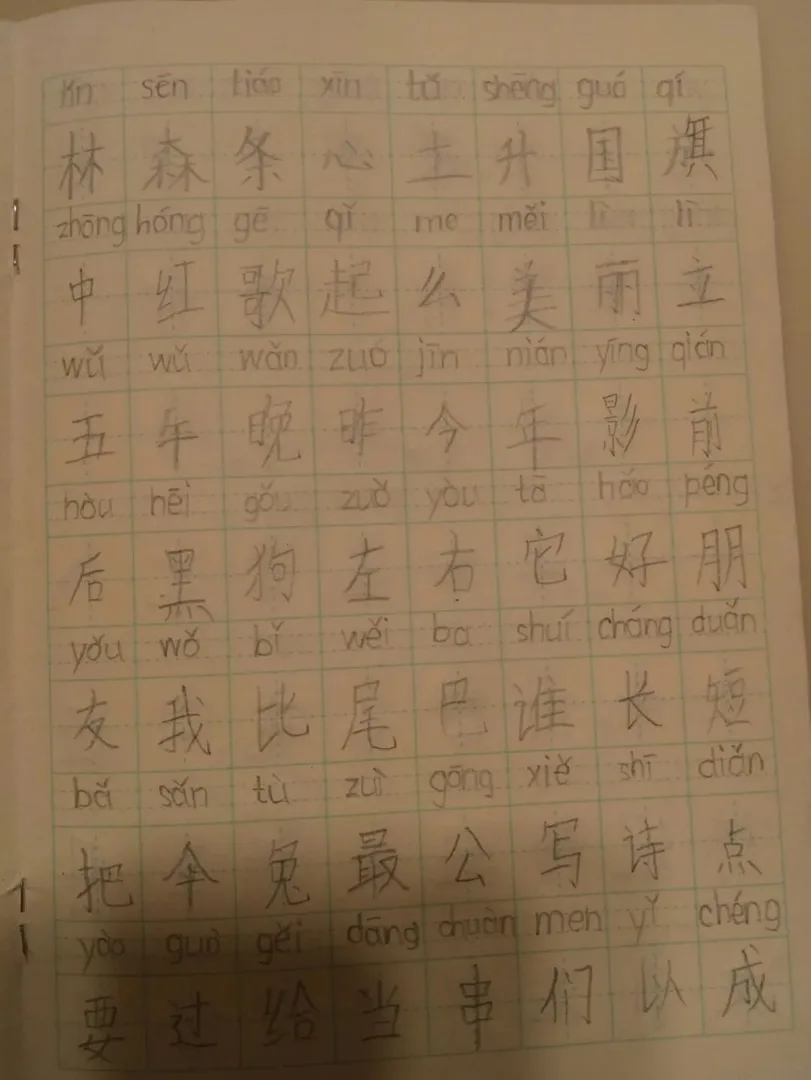 lín sēn tiáo xīn tǔ shēng guó qí
林 森 条 心 土 升 国 旗
zhōng hóng gē qǐ me měi lì lì
中 红 歌 起 么 美 丽 立
wǔ wǔ wǎn zuó jīn nián yǐng qián
五 午 晚 昨 今 年 影 前
hòu hēi gǒu zuǒ yòu tā hǎo péng
后 黑 狗 左 右 它 好 朋
yǒu wǒ bǐ wěi ba shuí cháng duǎn
友 我 比 尾 巴 谁 长 短
bǎ sǎn tù zuì gōng xiě shī diǎn
把 伞 兔 最 公 写 诗 点
yào guò gěi dāng chuàn men yǐ chéng
要 过 给 当 串 们 以 成